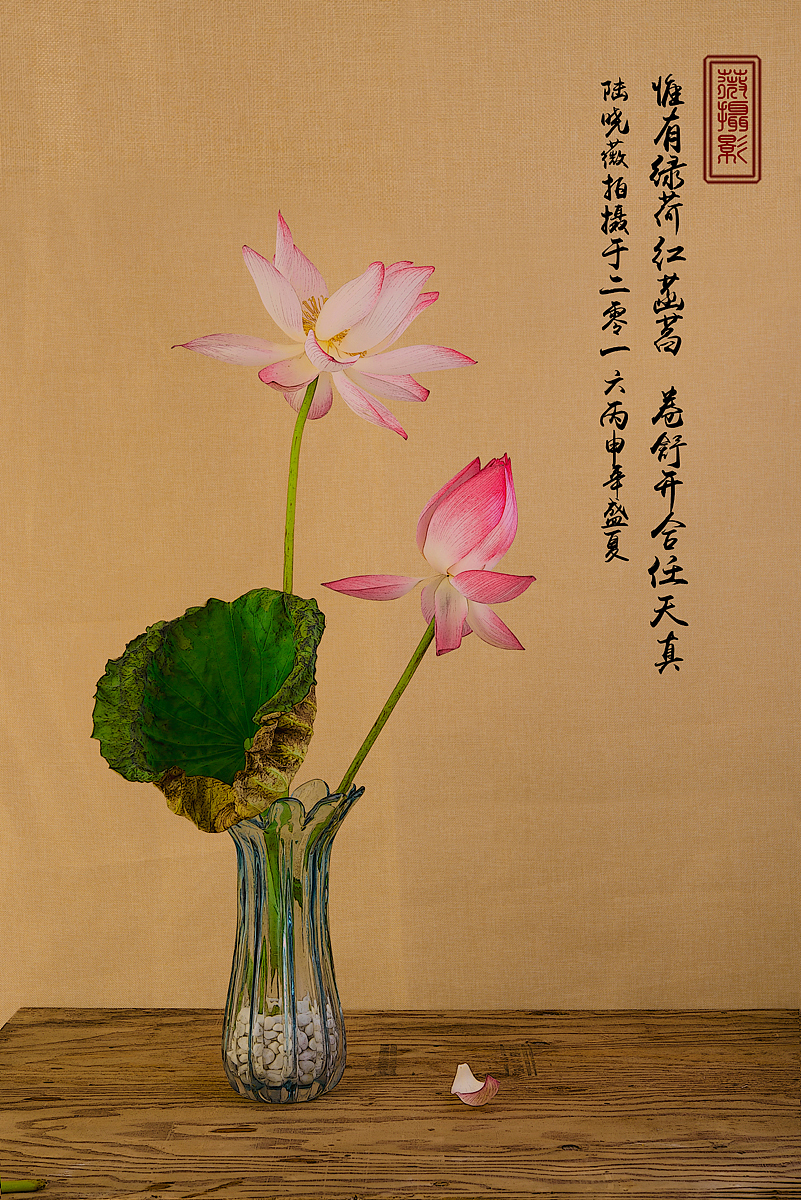 薇攝影
惟有绿荷红菡萏 卷舒开合任天真
陆晓薇拍摄于二零一六丙申年盛夏